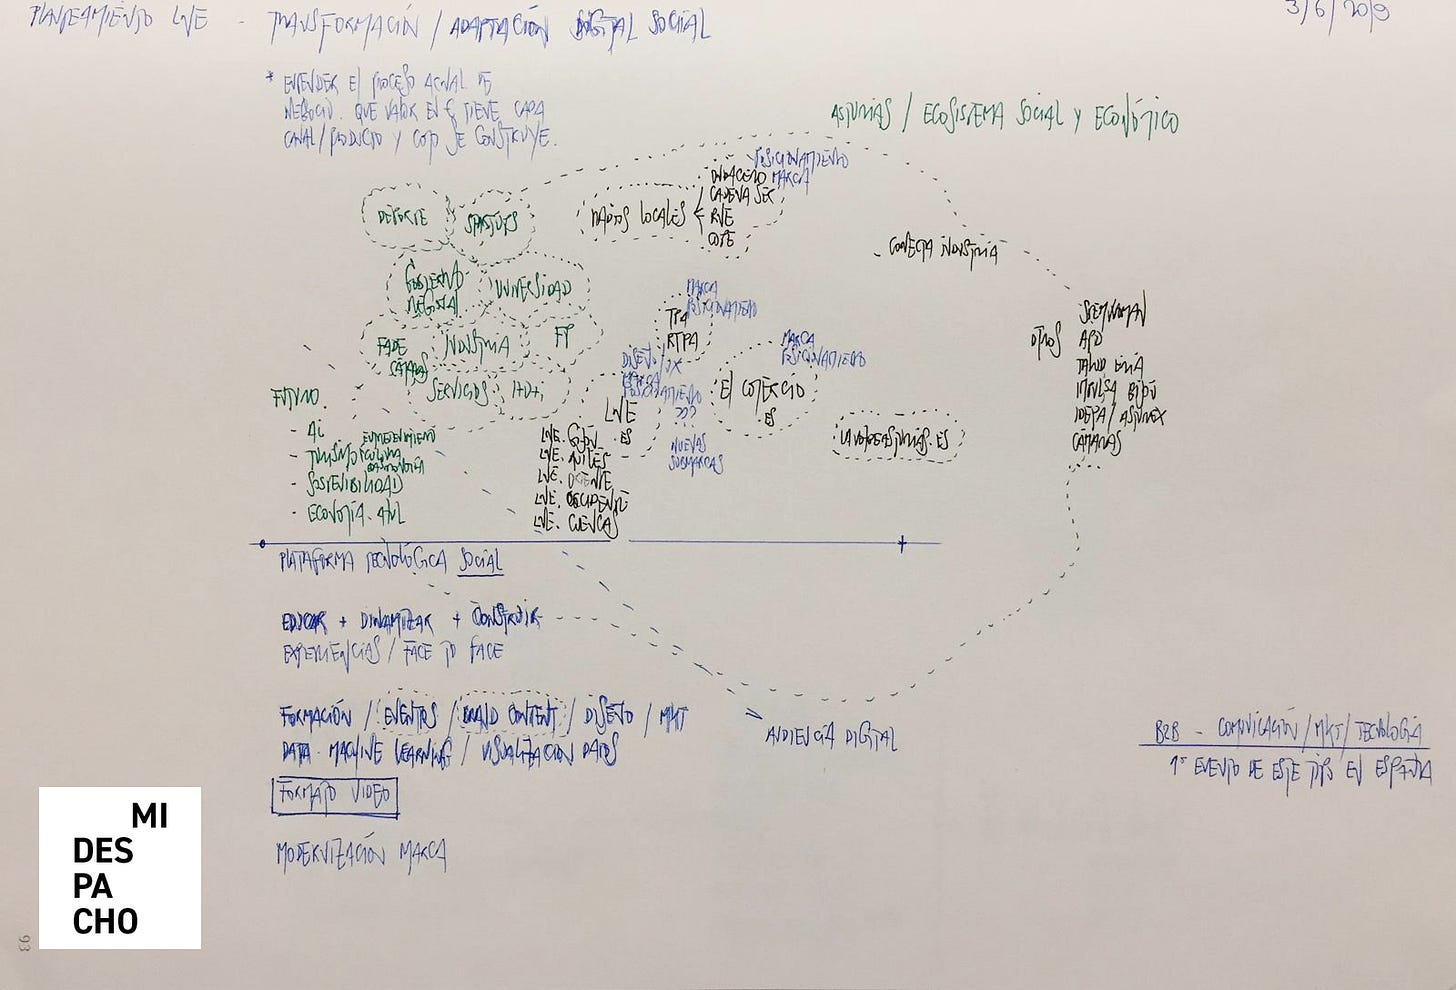 PLANEAMIENTO LNE - TRANSFORMACIÓN / ADAPTACIÓN DIGITAL SOCIAL
3/6/2019
* ENTENDER EL PROCESO ACTUAL DE
NEGOCIO. QUE VALOR EN € TIENE CADA
CANAL/PRODUCTO Y COMO SE CONSTRUYE.
ASTURIAS / ECOSISTEMA SOCIAL Y ECONÓMICO
DEPORTE
STARTUPS
GOBIERNO
REGIONAL
UNIVERSIDAD
FADE
CÁMARAS
INDUSTRIA
FP
SERVICIOS
I+D+i
RADIOS LOCALES
POSICIONAMIENTO
MARCA
ONDA CERO
CADENA SER
RNE
COPE
CONECTA INDUSTRIA
MARCA
POSICIONAMIENTO
TPA
RTPA
DISEÑO/UX
MARCA
POSICIONAMIENTO
???
NUEVAS
SUBMARCAS
LNE
.ES
LNE. GIJÓN
LNE. AVILÉS
LNE. ORIENTE
LNE. OCCIDENTE
LNE. CUENCAS
MARCA
POSICIONAMIENTO
EL COMERCIO
.ES
LAVOZDEASTURIAS.ES
OTROS
APD
IMPULSA
IDEPA / ASTUREX
CÁMARAS
FUTURO.
- AI
EMPRENDIMIENTO
- TURISMO/CULTURA
GASTRONOMÍA
- SOSTENIBILIDAD
- ECONOMÍA. AZUL
PLATAFORMA TECNOLÓGICA SOCIAL
EDUCAR + DINAMIZAR + CONSTRUIR
EXPERIENCIAS / FACE TO FACE
FORMACIÓN / EVENTOS / BRAND CONTENT / DISEÑO / MKT
DATA - MACHINE LEARNING / VISUALIZACION DATOS
FORMATO VIDEO
MODERNIZACIÓN MARCA
AUDIENCIA DIGITAL
B2B - COMUNICACIÓN / MKT / TECNOLOGIA
1º EVENTO DE ESTE TIPO EN ESPAÑA
MI
DES
PA
CHO
93